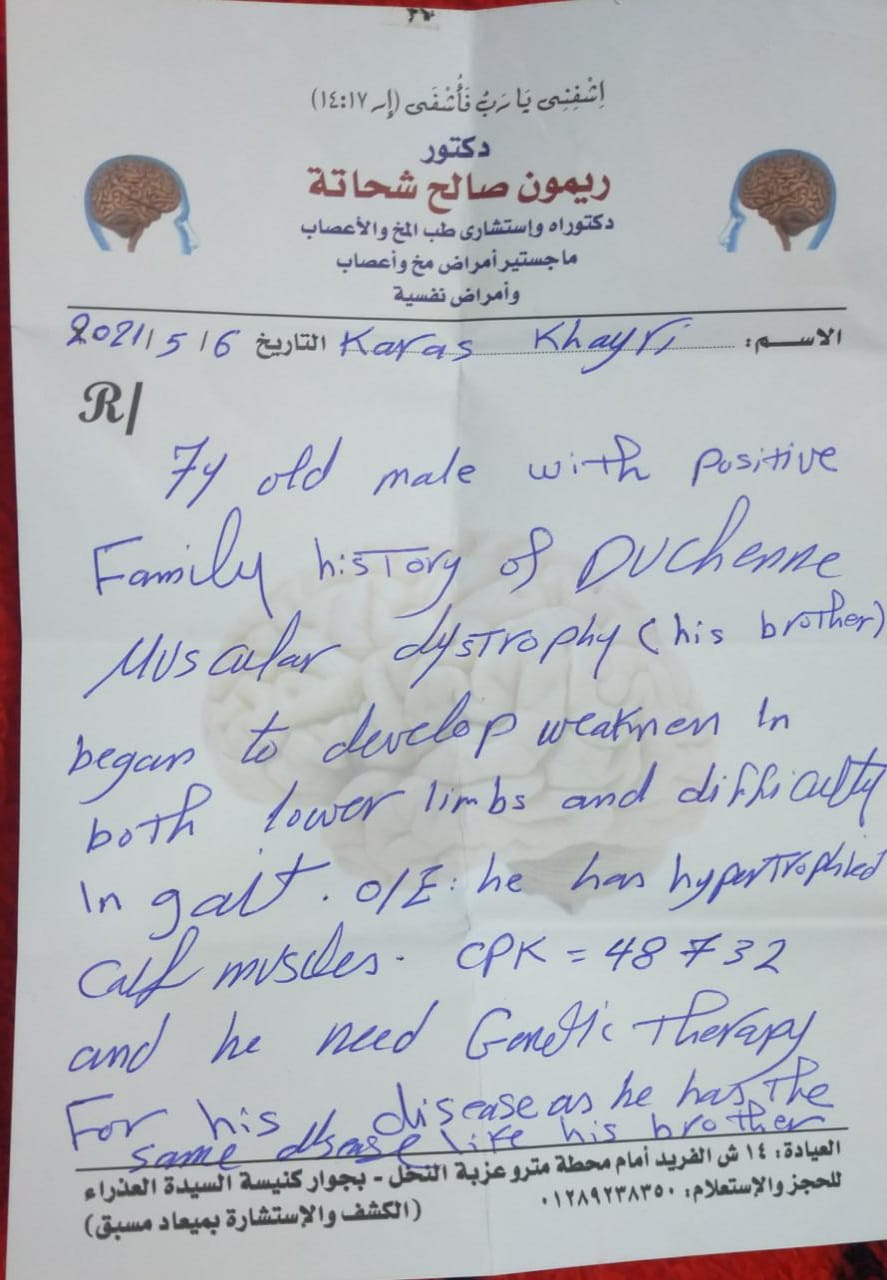 اِشْفِنِى يَا رَبُّ فَأُشْفَى (إر ١٤:١٧)
دكتور
ريمون صالح شحاتة
دكتوراه وإستشارى طب المخ والأعصاب
ماجستير أمراض مخ وأعصاب
وأمراض نفسية
الاســـم: Karas Khayri التاريخ 2021/5/6
R/
7y old male with positive
Family history of Duchenne
Muscular dystrophy (his brother)
began to develop weaknen In
both lower limbs and difficulty
In gait. O/E: he has hypertrophied
Calf muscles. CPK = 48732
and he need Genetic Therapy
For his disease as he has The
same disease like his brother
العيادة: ١٤ ش الفريد أمام محطة مترو عزبة النخل - بجوار كنيسة السيدة العذراء
للحجز والإستعلام: ٠١٢٨٩٢٣٨٣٥٠ (الكشف والإستشارة بميعاد مسبق)